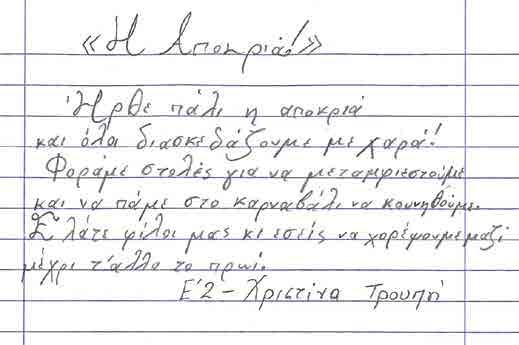 «Η Αποκριά!»
Ήρθε πάλι η αποκριά
και όλοι διασκεδάζουμε με χαρά!
Φοράμε στολές για να μεταμφιεστούμε
και να πάμε στο καρναβάλι να κουνηθούμε.
Ελάτε φίλοι μας κι εσείς να χορέψουμε μαζί
μέχρι τ'άλλο το πρωί.
Ε'2 - Χριστίνα Τρουπή